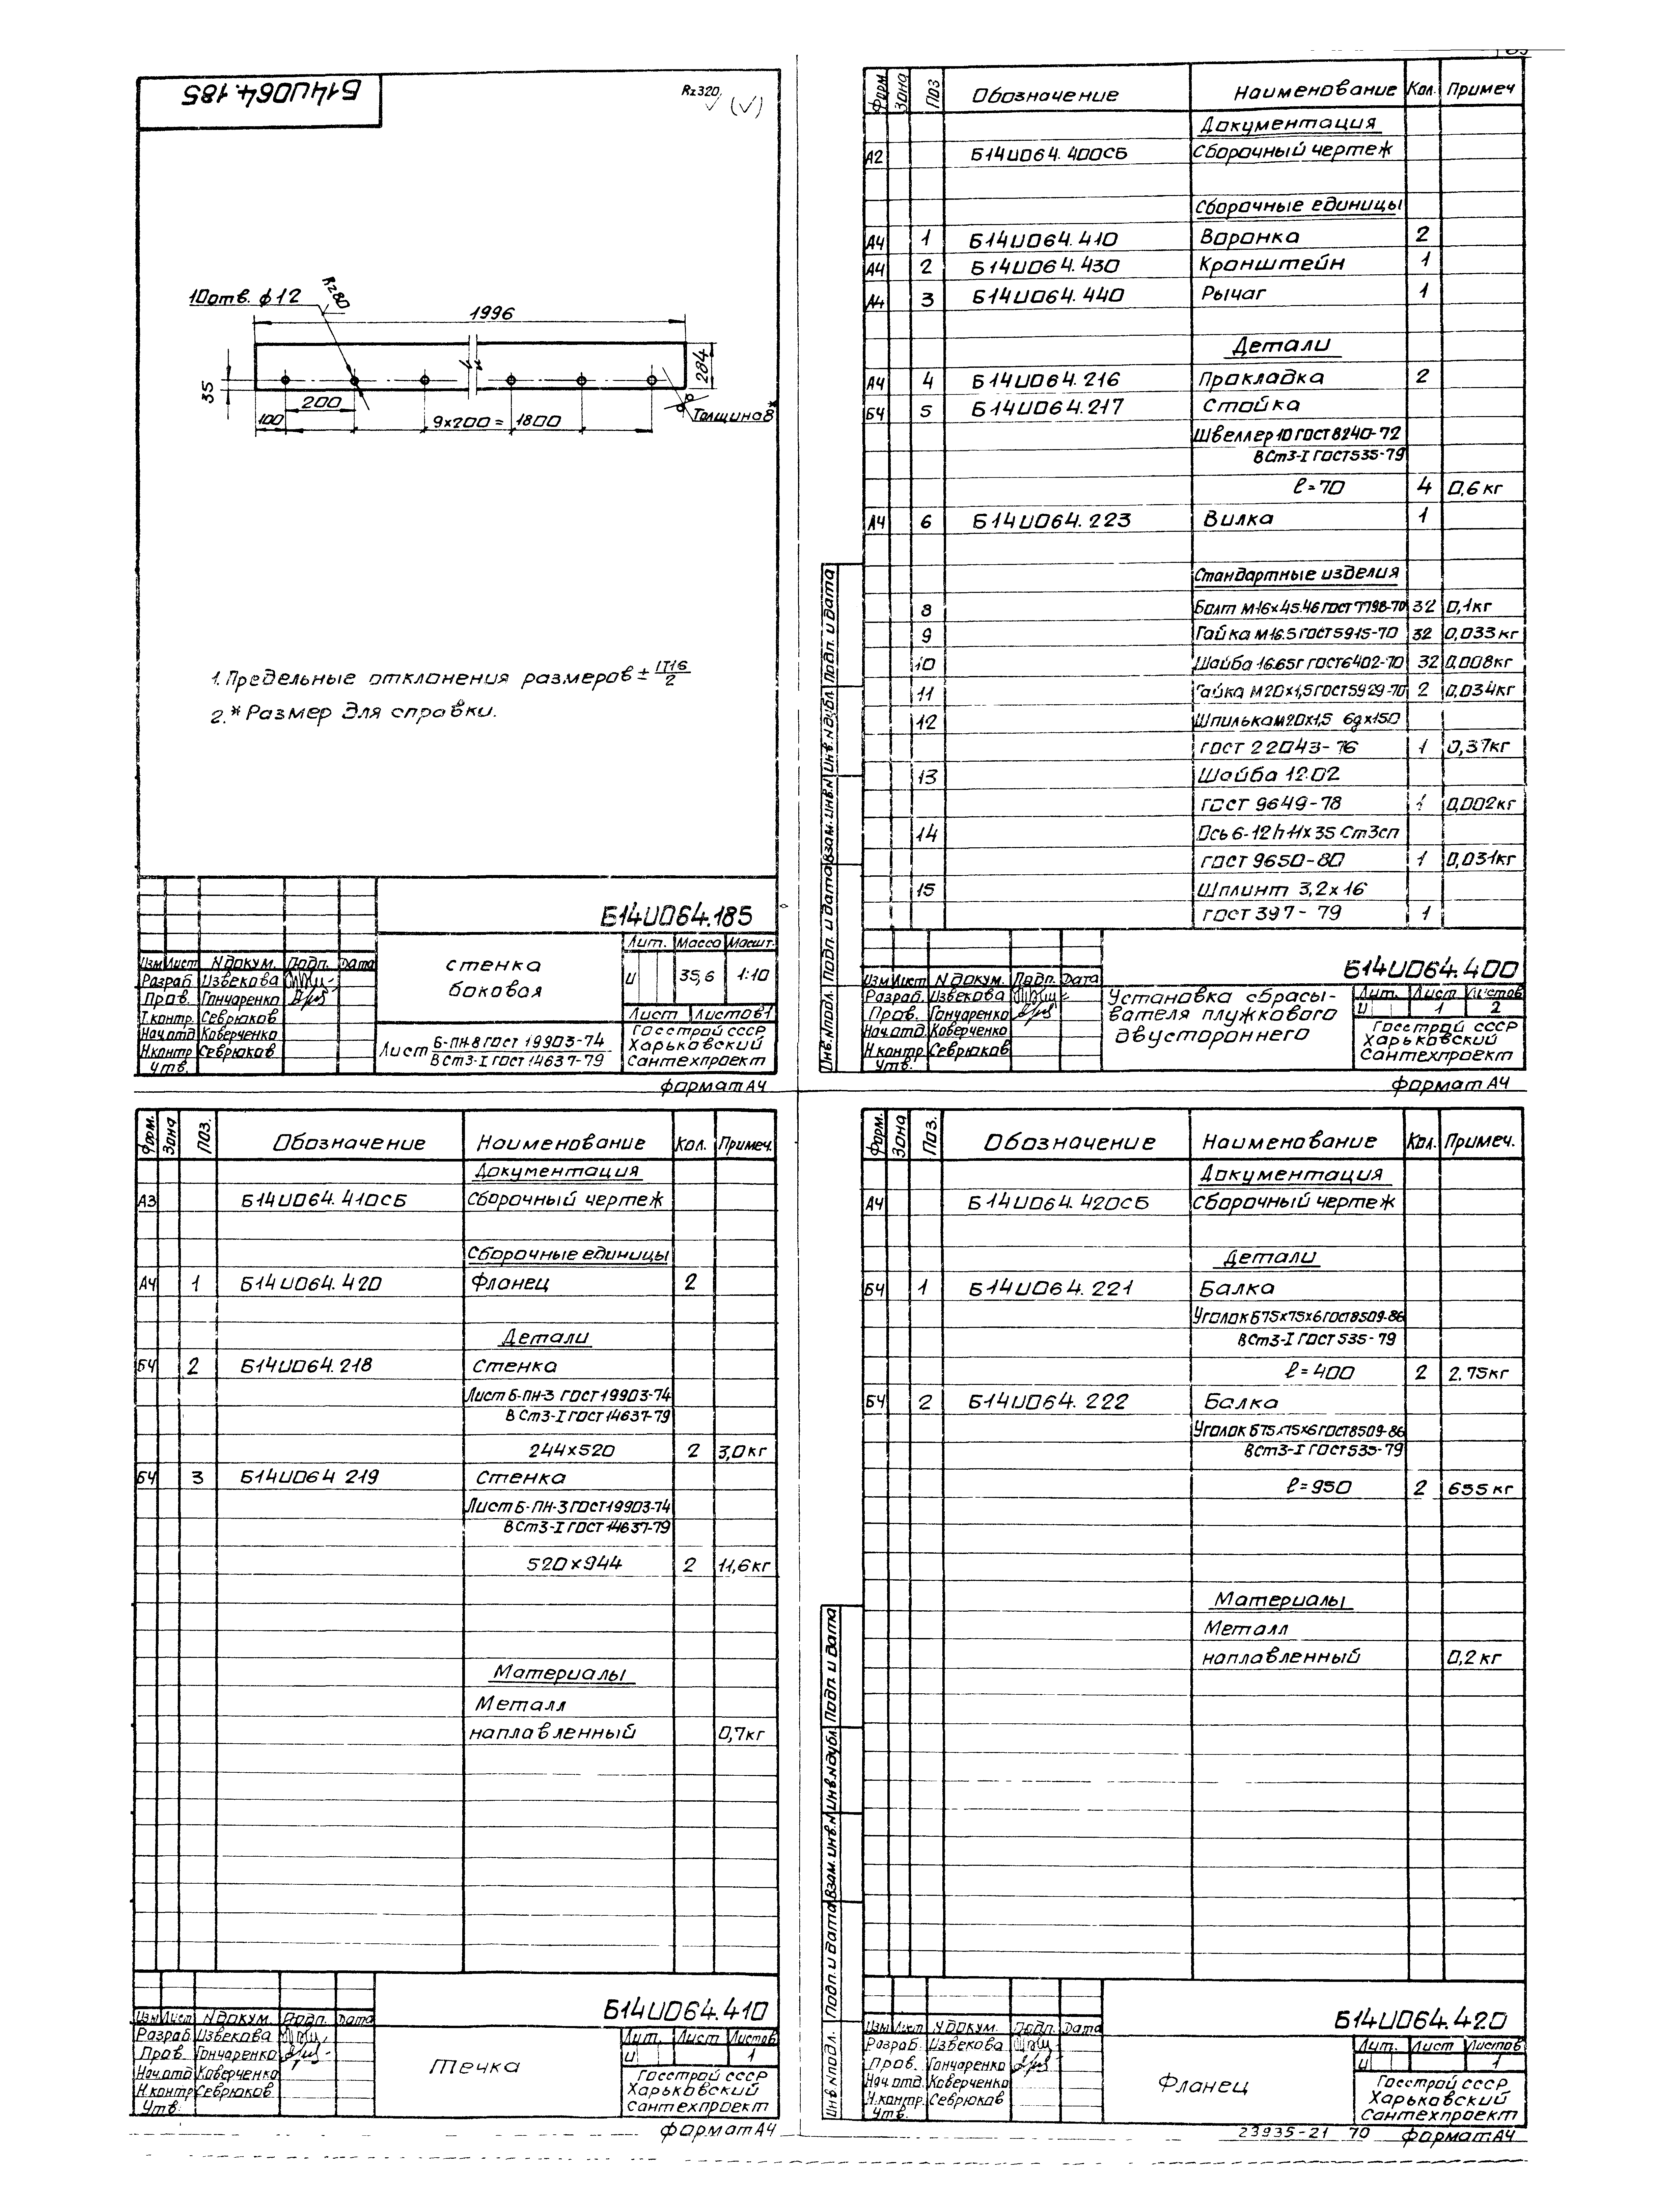 Б14И064.185
Rz320 (√)
10отв. ϕ12
Rz80
1996
35
284
200
100
9×200=1800
Толщина 8*
1. Предельные отклонения размеров ± IT16/2
2.* Размер для справки.
Б14И064.185
Лит. Масса Масшт.
Изм Лист N докум. Подп. Дата
Стенка
боковая
И 35,6 1:10
Разраб Извекова
Пров. Гончаренко
Т.контр. Севрюков
Лист Листов 1
Нач.отд Коверченко
Н.контр Севрюков
Утв.
Лист Б-ПН-8 ГОСТ 19903-74
ВСт3-I ГОСТ 14637-79
Госстрой СССР
Харьковский
Сантехпроект
формат А4
Форм Зона Поз Обозначение Наименование Кол. Примеч
Документация
А2 Б14И064.400СБ Сборочный чертеж
Сборочные единицы
А4 1 Б14И064.410 Воронка 2
А4 2 Б14И064.430 Кронштейн 1
А4 3 Б14И064.440 Рычаг 1
Детали
А4 4 Б14И064.216 Прокладка 2
БЧ 5 Б14И064.217 Стойка
Швеллер 10 ГОСТ 8240-72
ВСт3-I ГОСТ 535-79
ℓ=70 4 0,6 кг
А4 6 Б14И064.223 Вилка 1
Стандартные изделия
8 Болт М16×45.46 ГОСТ 7798-70 32 0,1кг
9 Гайка М16.5 ГОСТ 5915-70 32 0,033 кг
10 Шайба 16.65Г ГОСТ 6402-70 32 0,008кг
11 Гайка М20×1,5 ГОСТ 5929-70 2 0,034кг
12 Шпилька М20×1,5 6g×150
ГОСТ 22043-76 1 0,37кг
13 Шайба 12.02
ГОСТ 9649-78 1 0,002кг
14 Ось 6-12h11×35 Ст3сп
ГОСТ 9650-80 1 0,031кг
15 Шплинт 3,2×16
ГОСТ 397-79 1
Инв.Nподл. Подп. и дата Взам.инв.N Инв.Nдубл Подп. и дата
Б14И064.400
Изм Лист N докум. Подп. Дата
Разраб. Извекова
Пров. Гончаренко
Нач.отд Коверченко
Н.контр Севрюков
Утв.
Установка сбрасы-
вателя плужкового
двустороннего
Лит. Лист Листов
И 1 2
Госстрой СССР
Харьковский
Сантехпроект
формат А4
Форм. Зона Поз. Обозначение Наименование Кол. Примеч.
Документация
А3 Б14И064.410СБ Сборочный чертеж
Сборочные единицы
А4 1 Б14И064.420 Фланец 2
Детали
БЧ 2 Б14И064.218 Стенка
Лист Б-ПН-3 ГОСТ 19903-74
ВСт3-I ГОСТ 14637-79
244×520 2 3,0кг
БЧ 3 Б14И064 219 Стенка
Лист Б-ПН-3 ГОСТ 19903-74
ВСт3-I ГОСТ 14637-79
520×944 2 11,6кг
Материалы
Металл
наплавленный 0,7кг
Б14И064.410
Изм Лист N докум. Подп. Дата
Разраб Извекова
Пров. Гончаренко
Нач.отд Коверченко
Н.контр Севрюков
Утв.
Течка
Лит. Лист Листов
И 1
Госстрой СССР
Харьковский
Сантехпроект
формат А4
Форм. Зона Поз. Обозначение Наименование Кол. Примеч.
Документация
А4 Б14И064.420СБ Сборочный чертеж
Детали
БЧ 1 Б14И064.221 Балка
Уголок Б75×75×6 ГОСТ 8509-86
ВСт3-I ГОСТ 535-79
ℓ=400 2 2.75кг
БЧ 2 Б14И064.222 Балка
Уголок Б75×75×6 ГОСТ 8509-86
ВСт3-I ГОСТ 535-79
ℓ=950 2 655 кг
Материалы
Металл
наплавленный 0,2 кг
Инв.Nподл. Подп. и дата Взам.инв.N Инв.Nдубл. Подп. и дата
Б14И064.420
Изм Лист N докум. Подп. Дата
Разраб. Извекова
Пров. Гончаренко
Нач.отд. Коверченко
Н.контр. Севрюков
Утв.
Фланец
Лит. Лист Листов
И 1
Госстрой СССР
Харьковский
Сантехпроект
23935-21 70 формат А4